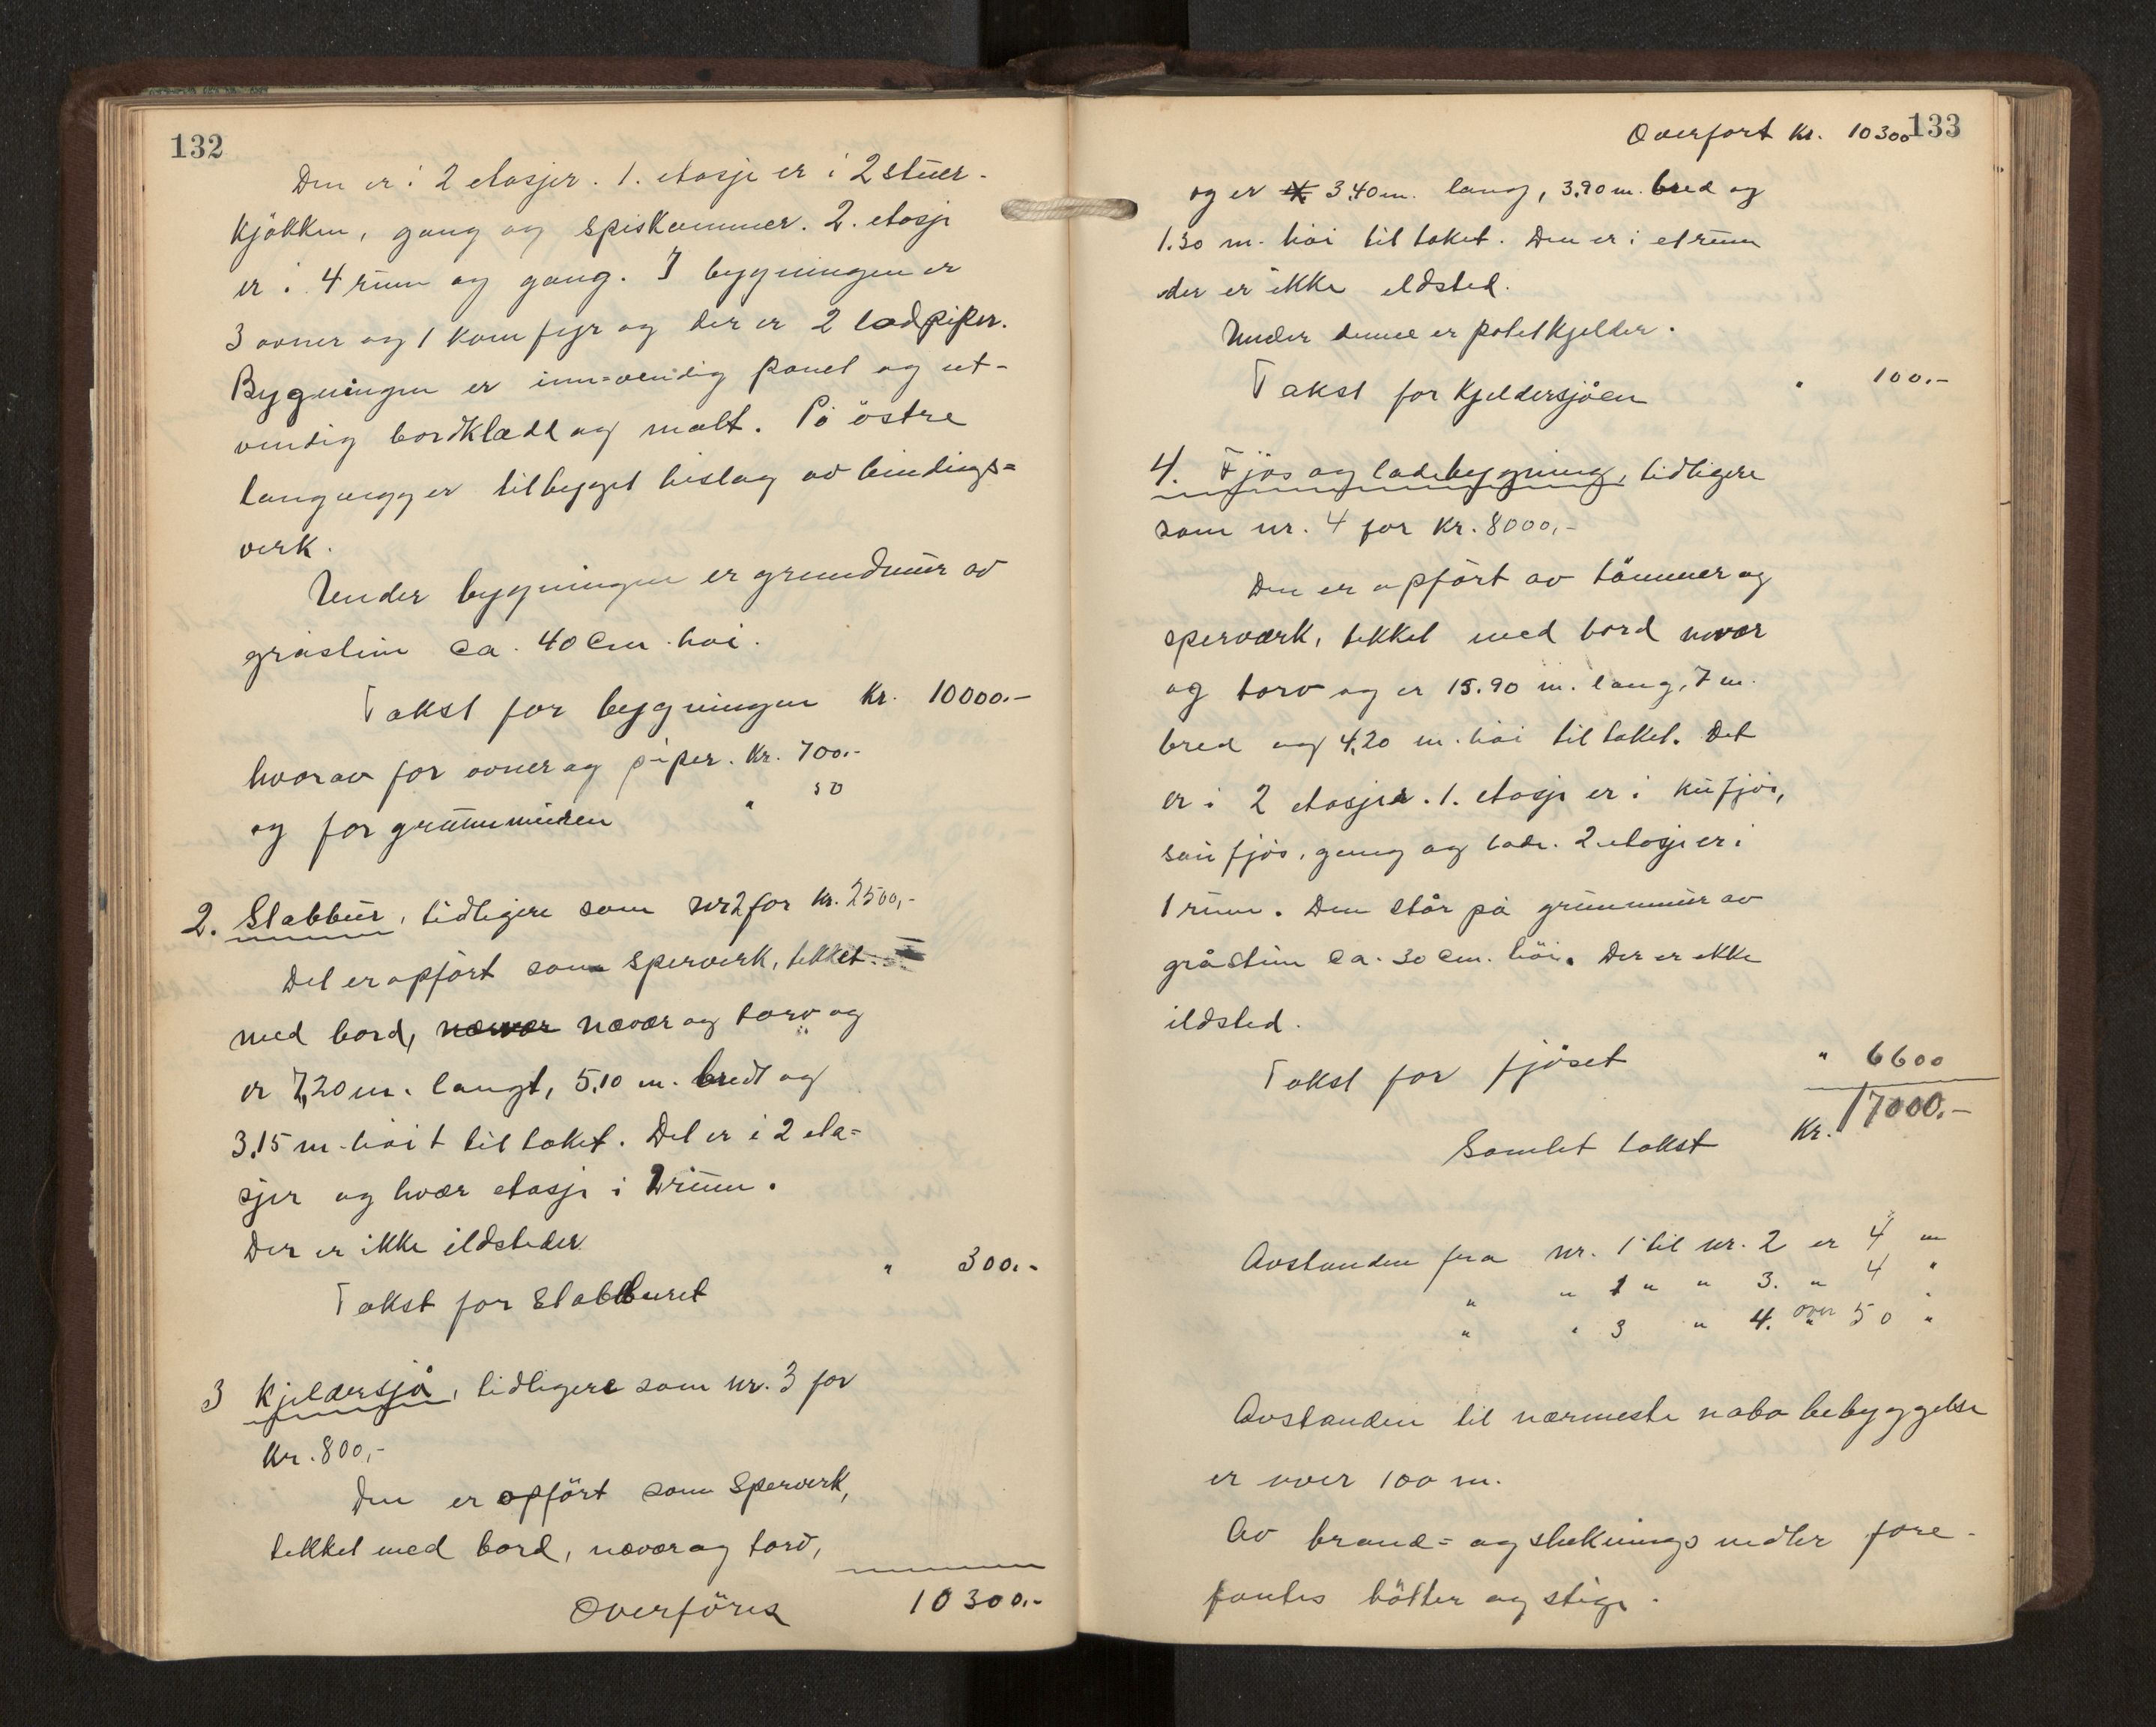 132
Den er i 2 etasjer. 1. etasje er i 2 stuer-
kjökken, gang og spiskammer. 2. etasje
er i 4 rum og gang. I bygningen er
3 ovner og 1 komfyr og der er 2 lodpiper.
Bygningen er inn=vendig panel og ut-
vendig bordklædd og malt. På östre
langvegg er tilbygget bislag av bindings=
verk.
Under bygningen er grundmur av
gråstein ca. 40 cm. høi.
Takst for bygningen Kr. 10000.-
hvorav for ovner og piper. Kr. 700.-
og for grunnmuren " 50
2. Stabbur, tidligere som nr 2 for Kr. 2500,-
Det er opfört som sperverk, tekket
med bord, nævær og torv og
er 7,20 m. langt, 5,10 m. bredt og
3,15 m. höit til taket. Det er i 2 eta=
sjer og hvær etasje i 2 rum.
Der er ikke ildsteder
Takst for Stabburet " 300.-
3 Kjeldersjå, tidligere som nr. 3 for
Kr. 800,-
Den er opfört som Sperverk,
tekket med bord, nævær og torv,
Overföres 10300.-
133
Overfört Kr. 10300
og er 3,40 m. lang, 3,90 m. bred og
1.30 m. höi til taket. Den er i et rum
der er ikke eldsted.
Under denne er potetkjelder.
Takst for Kjeldersjåen " 100.-
4. Fjös og ladebygning, tidligere
som nr. 4 for Kr. 8000,-
Den er opfört av tömmer og
sperværk, tekket med bord nevær
og torv og er 15.90 m. lang, 7 m.
bred og 4,20 m. höi til taket. Det
er i 2 etasjer. 1. etasje er i kufjös,
saufjös, gang og lade. 2 etasje er i
1 rum. Den står på grunnmur av
gråstein ca. 30 cm. höi. Der er ikke
ildsted.
Takst for fjöset " 6600
Samlet takst Kr. 17000.-
Avstanden fra nr. 1 til nr. 2 er 4 m
" " 1 " " 3. " 4 "
" " 3 " 4. over 50 "
Avstanden til nærmeste nabo bebyggelse
er over 100 m.
Av brand= og slukningsmidler fore-
fantes bötter og stige.